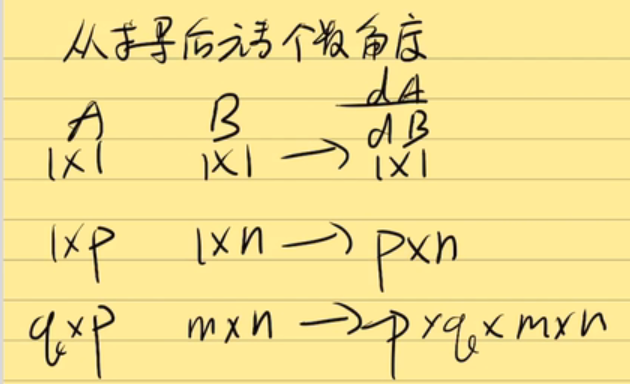 从求导后元素个数角度
A B dA/dB
1×1 1×1 → 1×1
1×p 1×n → p×n
q×p m×n → p×q×m×n